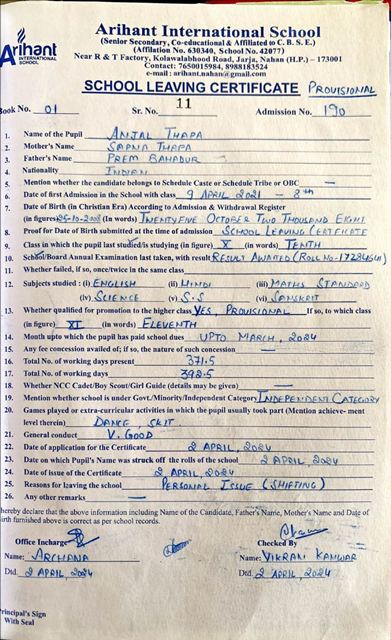 Arihant International School
(Senior Secondary, Co-educational & Affiliated to C. B. S. E.)
(Affiliation No. 630340, School No. 42077)
Near R & T Factory, Kolawalabhood Road, Jarja, Nahan (H.P.) – 173001
Contact: 7650015984, 8988183524
e-mail : arihant.nahan@gmail.com
Arihant
INTERNATIONAL
SCHOOL
SCHOOL LEAVING CERTIFICATE PROVISIONAL
Book No. 01 Sr. No. 11 Admission No. 190
1. Name of the Pupil ANJAL THAPA
2. Mother's Name SAPNA THAPA
3. Father's Name PREM BAHADUR
4. Nationality INDIAN
5. Mention whether the candidate belongs to Schedule Caste or Schedule Tribe or OBC —
6. Date of first Admission in the School with class 9 APRIL 2021 – 8th
7. Date of Birth (in Christian Era) According to Admission & Withdrawal Register
(in figures) 25-10-2008 (In words) TWENTYFIVE OCTOBER TWO THOUSAND EIGHT
8. Proof for Date of Birth submitted at the time of admission SCHOOL LEAVING CERTIFICATE
9. Class in which the pupil last studied/is studying (in figure) X (in words) TENTH
10. School/Board Annual Examination last taken, with result RESULT AWAITED (ROLL NO-
11. Whether failed, if so, once/twice in the same class
12. Subjects studied : (i) ENGLISH (ii) HINDI (iii) MATHS STANDARD
(iv) SCIENCE (v) S.S (vi) SANSKRIT
13. Whether qualified for promotion to the higher class YES, PROVISIONAL If so, to which class
(in figure) XI (in words) ELEVENTH
14. Month upto which the pupil has paid school dues UPTO MARCH, 2024
15. Any fee concession availed of; if so, the nature of such concession —
16. Total No. of working days present 371.5
17. Total No. of working days 392.5
18. Whether NCC Cadet/Boy Scout/Girl Guide (details may be given) —
19. Mention whether school is under Govt./Minority/Independent Category INDEPENDENT CATEGORY
20. Games played or extra-curricular activities in which the pupil usually took part (Mention achieve- ment
level therein) DANCE, SKIT
21. General conduct V. GOOD
22. Date of application for the Certificate 2 APRIL, 2024
23. Date on which Pupil's Name was struck off the rolls of the school 2 APRIL, 2024
24. Date of issue of the Certificate 2 APRIL, 2024
25. Reasons for leaving the school PERSONAL ISSUE (SHIFTING)
26. Any other remarks —
hereby declare that the above information including Name of the Candidate, Father's Name, Mother's Name and Date of
irth furnished above is correct as per school records.
Office Incharge Checked By
Name: ARCHANA Name: VIKRAM KANWAR
Dtd. 2 APRIL, 2024 Dtd. 2 APRIL, 2024
rincipal's Sign
With Seal